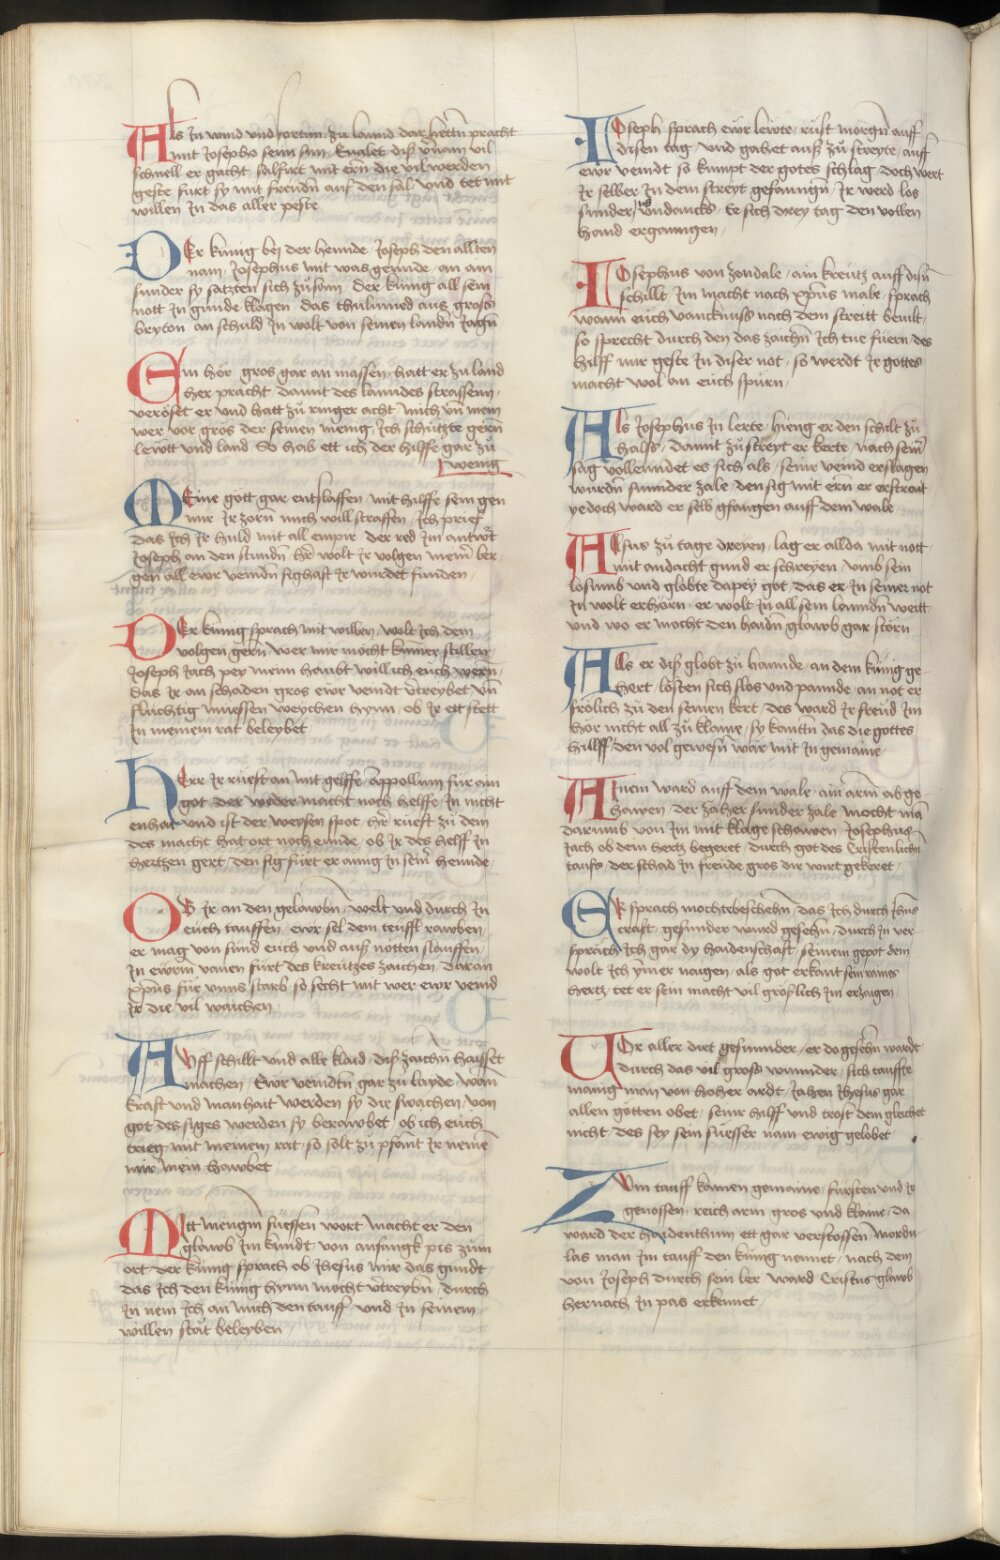 Als Jn wind vnd fortun zu lannd dar hettn pracht
mit Josepho seim sun Eualet diß vernam vil
schnell er gacht salfurt mit ern die vil werden
geste furt sy mit freudn auf den sal vnd tet mit
willen Jn das aller peste
DEr kunig bei der hennde Joseph den allten
nam Josephus mit was gennde an am
sunder sy satzten sich zusam der kunig all sein
nott Jn gunde klagen das thulumed aus gross
bryton an schuld Jn wolt von seinen landn Jagn
Ein hör gros gar an massen hatt er zu land
her pracht damit des lanndes strassenn
veröset er vnd hatt zu ringer acht mich vn mein
wer vor gros der seinen menig Jch schutzte gern
lewtt vnd land So hab ett ich der hilffe gar zu
wenig
MEine gott gar entslaffen mit hilffe sein gen
mir Jr zorn mich will straffen Jch prief
das Jch Jr huld mit all empir der red Jm antwort
Joseph an den stundn her wolt Jr volgen meiner ler
gen all ewr veindn sighaft Jr wurdet funden
DEr kunig sprach mit willen wolt Jch dem
volgen gern wer mir mocht kumer stillen
Joseph Jach pey meim haubt will ich euch wern
das Jr an schaden gros ewr veindt vertreybet vn
fluchtig muessen weychen hynn ob Jr ett stett
Jn meinem rat beleybet
HErr Jr rueft an mit gelffe Appollum fur ain
got der weder macht noch helffe Jn nicht
enhat vnd ist der weysen spot her rueft zu dem
des macht hat ort noch ennde ob Jr des helff Jn
hertzen gert den sig furt er ainig Jn seiner hennde
OB Jr an den gelawbn welt vnd durch Jn
euch tauffen ewr sel dem teufl rawben
er mag von sund euch vnd auß notten slauffen
Jn ewrm vanen furt des kreutzes zaichen daran
xpus fur vnns starb so secht mit wer ewr veind
Jr die vil waichen
AVff schillt vnd alle klaid diß zaichn haisset
machen Ewr veindtn gar zu layde wann
kraft vnd manhait werden sy die swachen von
got des siges werden sy berawbet ob ich euch
trieg mit meinem rat so solt zu pfant Jr neme
mir mein hawbet
MItt mengm suessen wort macht er den
glawb Jm kundt von anfangk pis zum
ort der kunig sprach ob Jhesus mir das gundt
das Jch den kunig hynn mocht vertreybn durch
Jn nem Jch an mich den tauff vnd Jn seinem
willen stat beleyben
IOseph sprach ewr lewte ruft morgn auff
disen tag vnd gahet auß zu streyte auff
ewr veindt so kumpt der gotes schlag doch wert
Jr selber Jn dem streyt gefanngn Jr werd los
sunder vndancks Ee sich drey tag den vollen
hand erganngen
IOsephus von zendale ain kreutz auff disn
schillt Jm macht nach xpus male sprach
wann euch vancknuss nach dem streitt beuilt
so sprecht durch den das zaichn Jch tue fuern des
hilff mir geste Jn diser not so werdt Jr gottes
macht wol an euch spurn
Als Josephus Jn lerte hieng er den schilt zu
halss damit zu streyt er kerte nach seiner
sag vollenndet es sich als seine veind erslagen
wurdn sunnder zale den sig mit ern er erstrait
yedoch ward er selb gfangen auff dem wale
Alsus zu tage dreyen lag er allda mit nott
mit andacht gund er schreyen vmb sein
losumb vnd globte dapey got das er Jn seiner not
Jn wolt erhörn er wolt Jn all sein lanndn weitt
vnd wo er mocht den haidn glawb gar störn
Alls er diß globt zu hannde an dem kunig ge
hert losten sich slos vnd pannde an not er
frölich zu den seinen kert des ward Jr freud Jm
hör nicht all zu klaine sy kantn das die gottes
hillff den vol gewesn war mit Jn gemaine
AInem ward auff dem wale ain arm abge
hawen der zaher sunder zale mocht man
darumb von Jm mit klage schawen Josephus
Jach ob dein hertz begeret durch got des Cristenlichn
tauffs der schad Jn freude gros dir wirt gekeret
ER sprach mochte beschehn das Jch durch Jhus
craft gesunder wurd gesehn durch Jn ver
sprach Jch gar dy haidenschaft seinem gepot dem
wolt Jch ymer naigen als got erkant sein raines
hertz tet er sein macht vil gröslich Jm erzaigen
VOr aller diet gesunnder er do gesehn wardt
durch das vil gross wunnder sich tauffte
manig man von hoher ardt Jahen Jhesus gar
allen gotten obet seine hilff vnd trost dem gleichet
nicht des sey sein suesser nam ewig gelobet
ZVm tauff kamen gemaine fursten vnd Jr
genossen reich arm gros vnd klaine da
ward der haidenthum ett gar verstossen Mordn
las man Jm tauff den kunig nennet nach dem
von Joseph durch sein ler ward Cristus glawb
hernach Jn pas erkennet